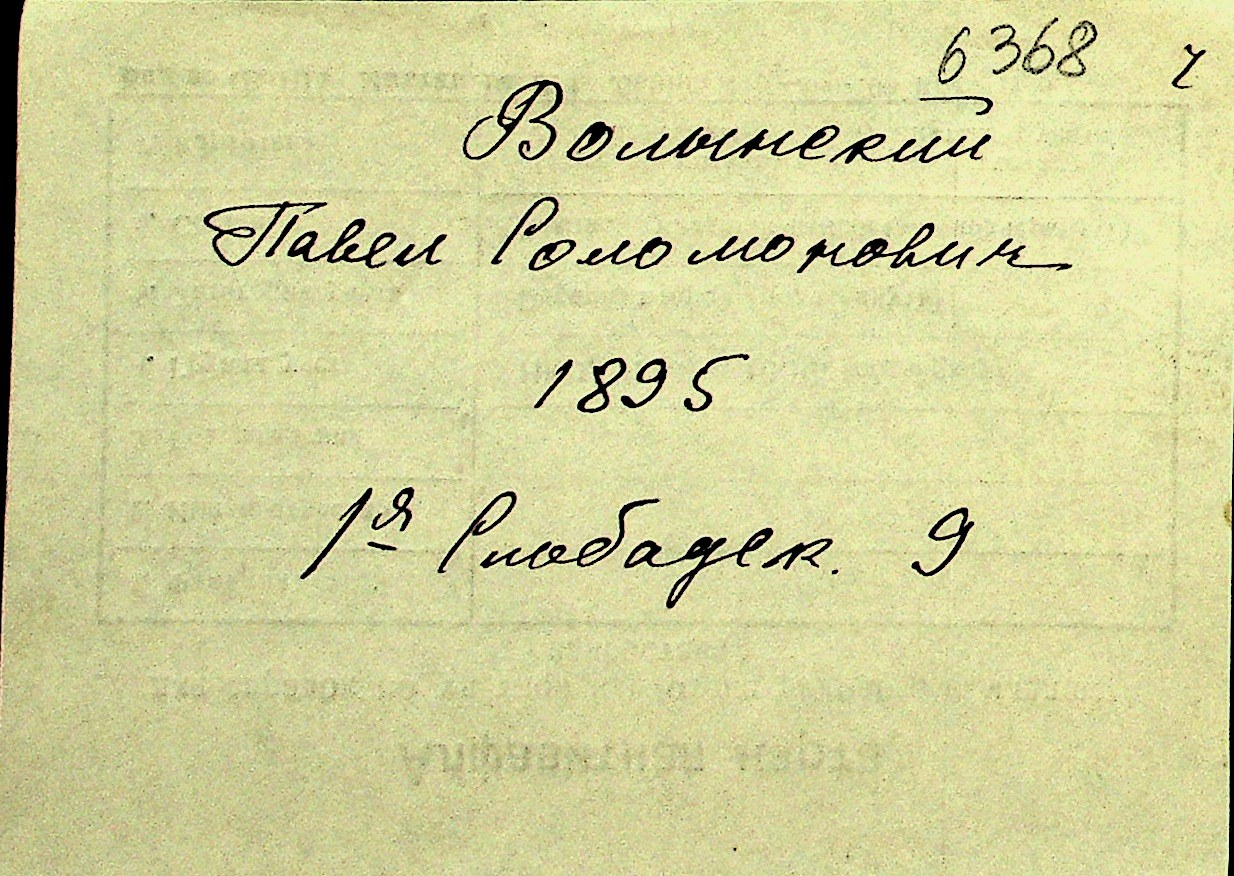 6368 ч
Волынский
Павел Соломонович
1895
1я Слободск. 9